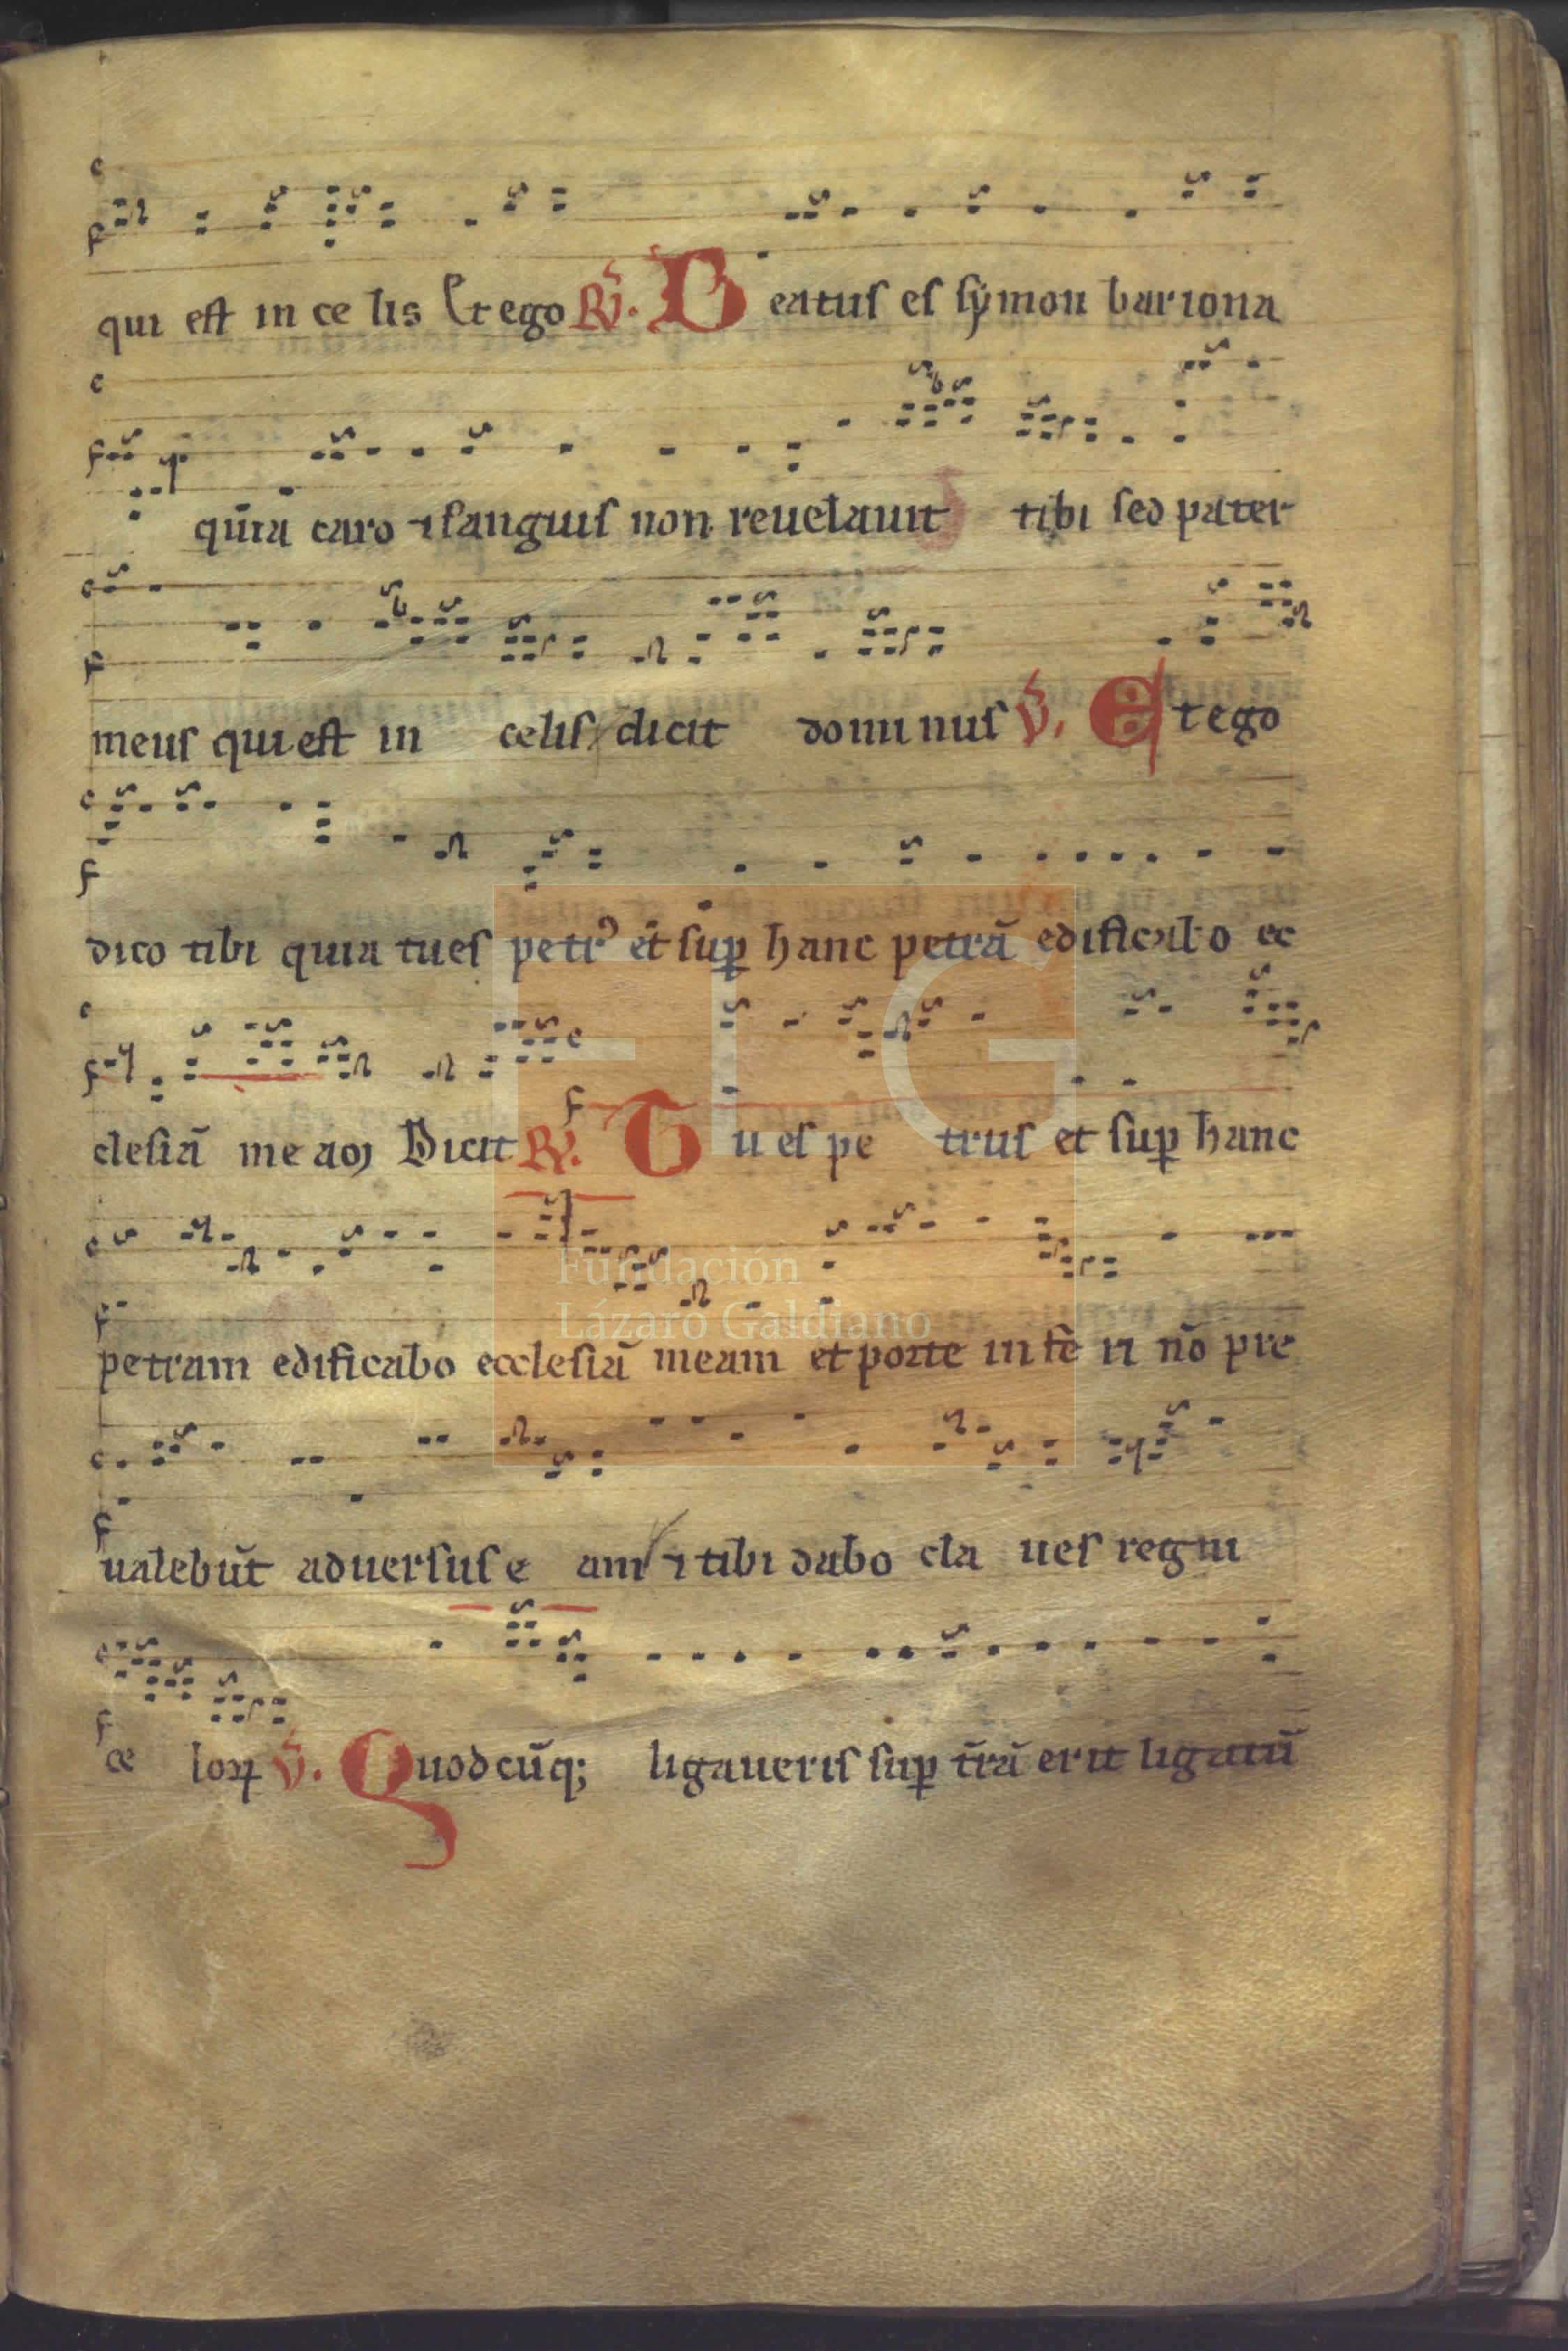 qui est in ce lis Et ego R̃. Beatus es sẏmon bariona
quı̃a caro ⁊ sanguis non reuelauit tibi sed pater
meus qui est in celis dicit dominus ṽ. Et ego
dico tibi quia tu es petrꝰ et̃ suꝑ hanc petrã edificabo ec
clesiã me aꝫ Dicit R̃. Tu es pe trus et suꝑ hanc
petram edificabo ecclesiã meam et porte infe ri nõ pre
ualebũt aduersus e am ⁊ tibi dabo cla ues regni
ce loꝝ ṽ. Quodcũq; ligaueris suꝑ t̃rã erit ligatũ
FLG
Fundación
Lázaro Galdiano